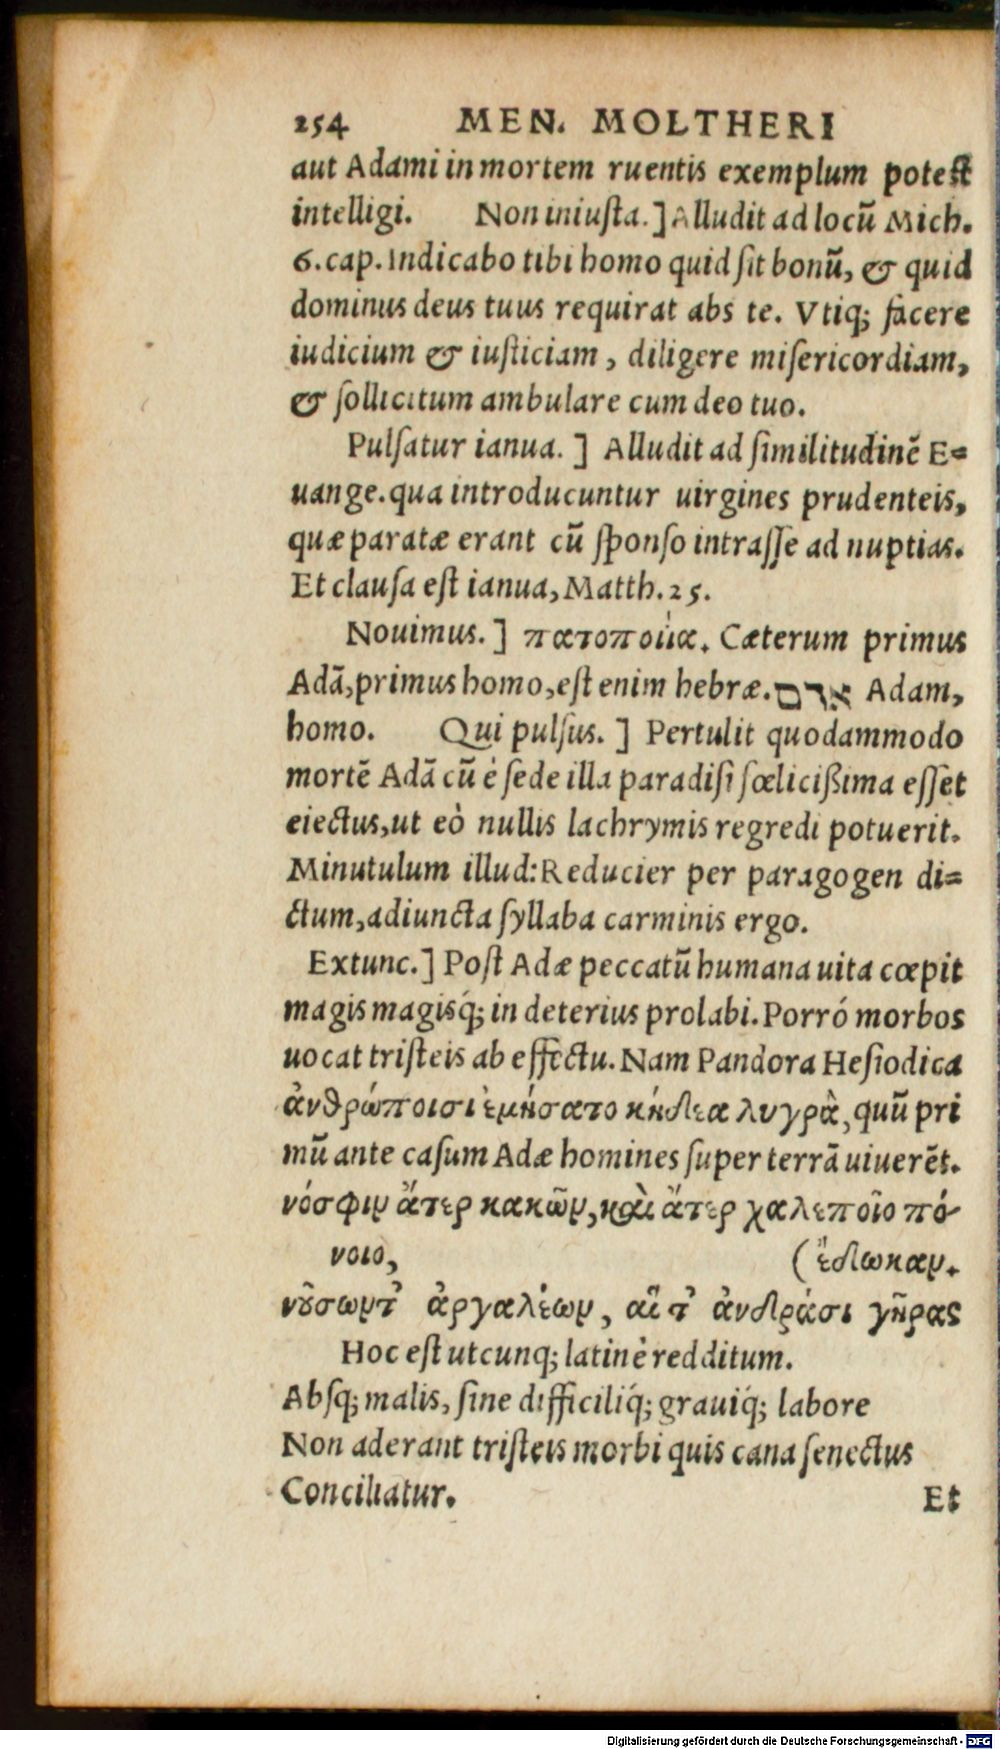 254 MEN. MOLTHERI
aut Adami in mortem ruentis exemplum potest
intelligi. Non iniusta.] Alludit ad locū Mich.
6. cap. Indicabo tibi homo quid sit bonū, & quid
dominus deus tuus requirat abs te. Vtiq; facere
iudicium & iusticiam, diligere misericordiam,
& sollicitum ambulare cum deo tuo.
Pulsatur ianua.] Alludit ad similitudinē E=
uange. qua introducuntur uirgines prudenteis,
quæ paratæ erant cū sponso intrasse ad nuptias.
Et clausa est ianua, Matth. 25.
Nouimus.] πατοποιία. Cæterum primus
Adā, primus homo, est enim hebræ. אדם Adam,
homo. Qui pulsus.] Pertulit quodammodo
mortē Adā cū è sede illa paradisi fœlicißima esset
eiectus, ut eò nullis lachrymis regredi potuerit.
Minutulum illud: Reducier per paragogen di=
ctum, adiuncta syllaba carminis ergo.
Extunc.] Post Adæ peccatū humana uita cœpit
magis magisq́; in deterius prolabi. Porró morbos
uocat tristeis ab effectu. Nam Pandora Hesiodica
ἀνθρώποισι ἐμήσατο κήδεα λυγρὰ, quū pri
mū ante casum Adæ homines super terrā uiuerēt.
νόσφιν ἄτερ κακῶν, καὶ ἄτερ χαλεποῖο πό-
νοιο, (ἔδωκαν.
νούσων τ' ἀργαλέων, αἵ τ' ἀνδράσι γῆρας
Hoc est utcunq; latinè redditum.
Absq; malis, sine difficiliq́; grauiq́; labore
Non aderant tristeis morbi quis cana senectus
Conciliatur. Et
Digitalisierung gefördert durch die Deutsche Forschungsgemeinschaft - DFG